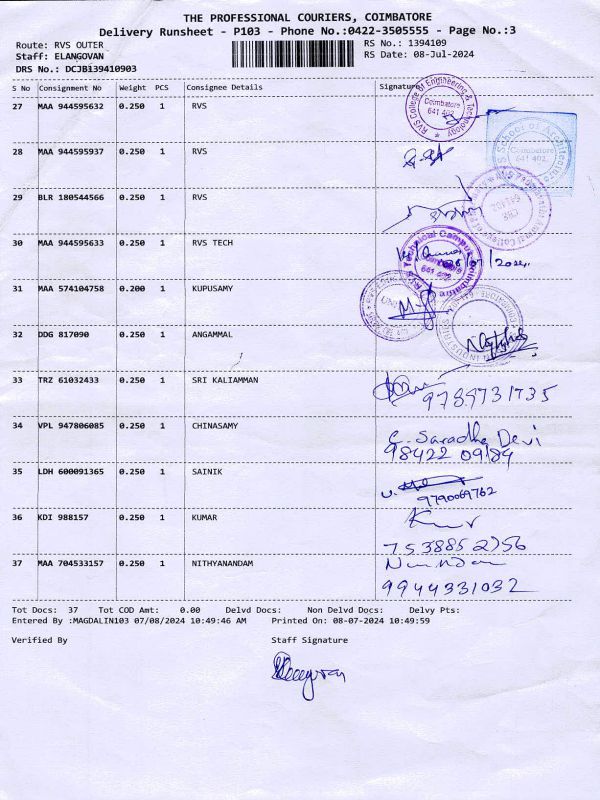 THE PROFESSIONAL COURIERS, COIMBATORE
Delivery Runsheet - P103 - Phone No.:0422-3505555 - Page No.:3
Route: RVS OUTER RS No.: 1394109
Staff: ELANGOVAN RS Date: 08-Jul-2024
DRS No.: DCJB139410903
S No Consignment No Weight PCS Consignee Details Signature
27 MAA 944595632 0.250 1 RVS
RVS College of Engineering & Technology
Coimbatore
641 402.
28 MAA 944595937 0.250 1 RVS
School of Architecture
Coimbatore
641 402.
29 BLR 180544566 0.250 1 RVS
30 MAA 944595633 0.250 1 RVS TECH
RVS Technical Campus Coimbatore
641 402
31 MAA 574104758 0.200 1 KUPUSAMY
32 DDG 817090 0.250 1 ANGAMMAL
33 TRZ 61032433 0.250 1 SRI KALIAMMAN
9789731735
34 VPL 947806085 0.250 1 CHINASAMY
C. Saradha Devi
98422 09184
35 LDH 600091365 0.250 1 SAINIK
9790069762
36 KDI 988157 0.250 1 KUMAR
7538852756
37 MAA 704533157 0.250 1 NITHYANANDAM
9944331032
Tot Docs: 37 Tot COD Amt: 0.00 Delvd Docs: Non Delvd Docs: Delvy Pts:
Entered By :MAGDALIN103 07/08/2024 10:49:46 AM Printed On: 08-07-2024 10:49:59
Verified By Staff Signature